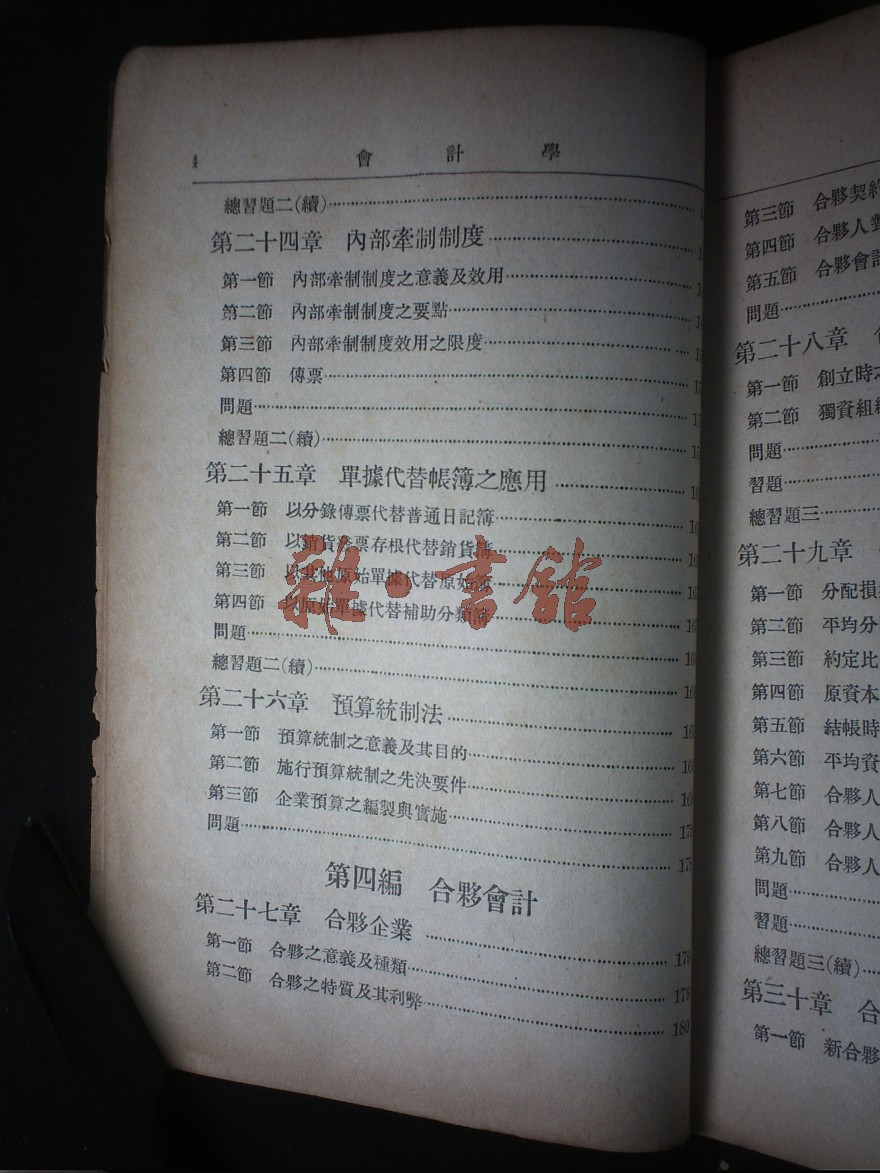 4 會計學
總習題二(續)
第二十四章 內部牽制制度
第一節 內部牽制制度之意義及效用
第二節 內部牽制制度之要點
第三節 內部牽制制度效用之限度
第四節 傳票
問題
總習題二(續)
第二十五章 單據代替帳簿之應用
第一節 以分錄傳票代替普通日記簿
第二節 以銷貨發票存根代替銷貨簿
第三節 以其他原始單據代替原始簿
第四節 以原始單據代替補助分類簿
問題
總習題二(續)
第二十六章 預算統制法
第一節 預算統制之意義及其目的
第二節 施行預算統制之先決要件
第三節 企業預算之編製與實施
問題
第四編 合夥會計
第二十七章 合夥企業 179
第一節 合夥之意義及種類 179
第二節 合夥之特質及其利弊 180
雜·書館
第三節 合夥契約
第四節 合夥人對
第五節 合夥會計
問題
第二十八章
第一節 創立時
第二節 獨資組
問題
習題
總習題三
第二十九章
第一節 分配損
第二節 平均分
第三節 約定比
第四節 原資本
第五節 結帳時
第六節 平均資
第七節 合夥人
第八節 合夥人
第九節 合夥人
問題
習題
總習題三(續)
第三十章 合
第一節 新合夥